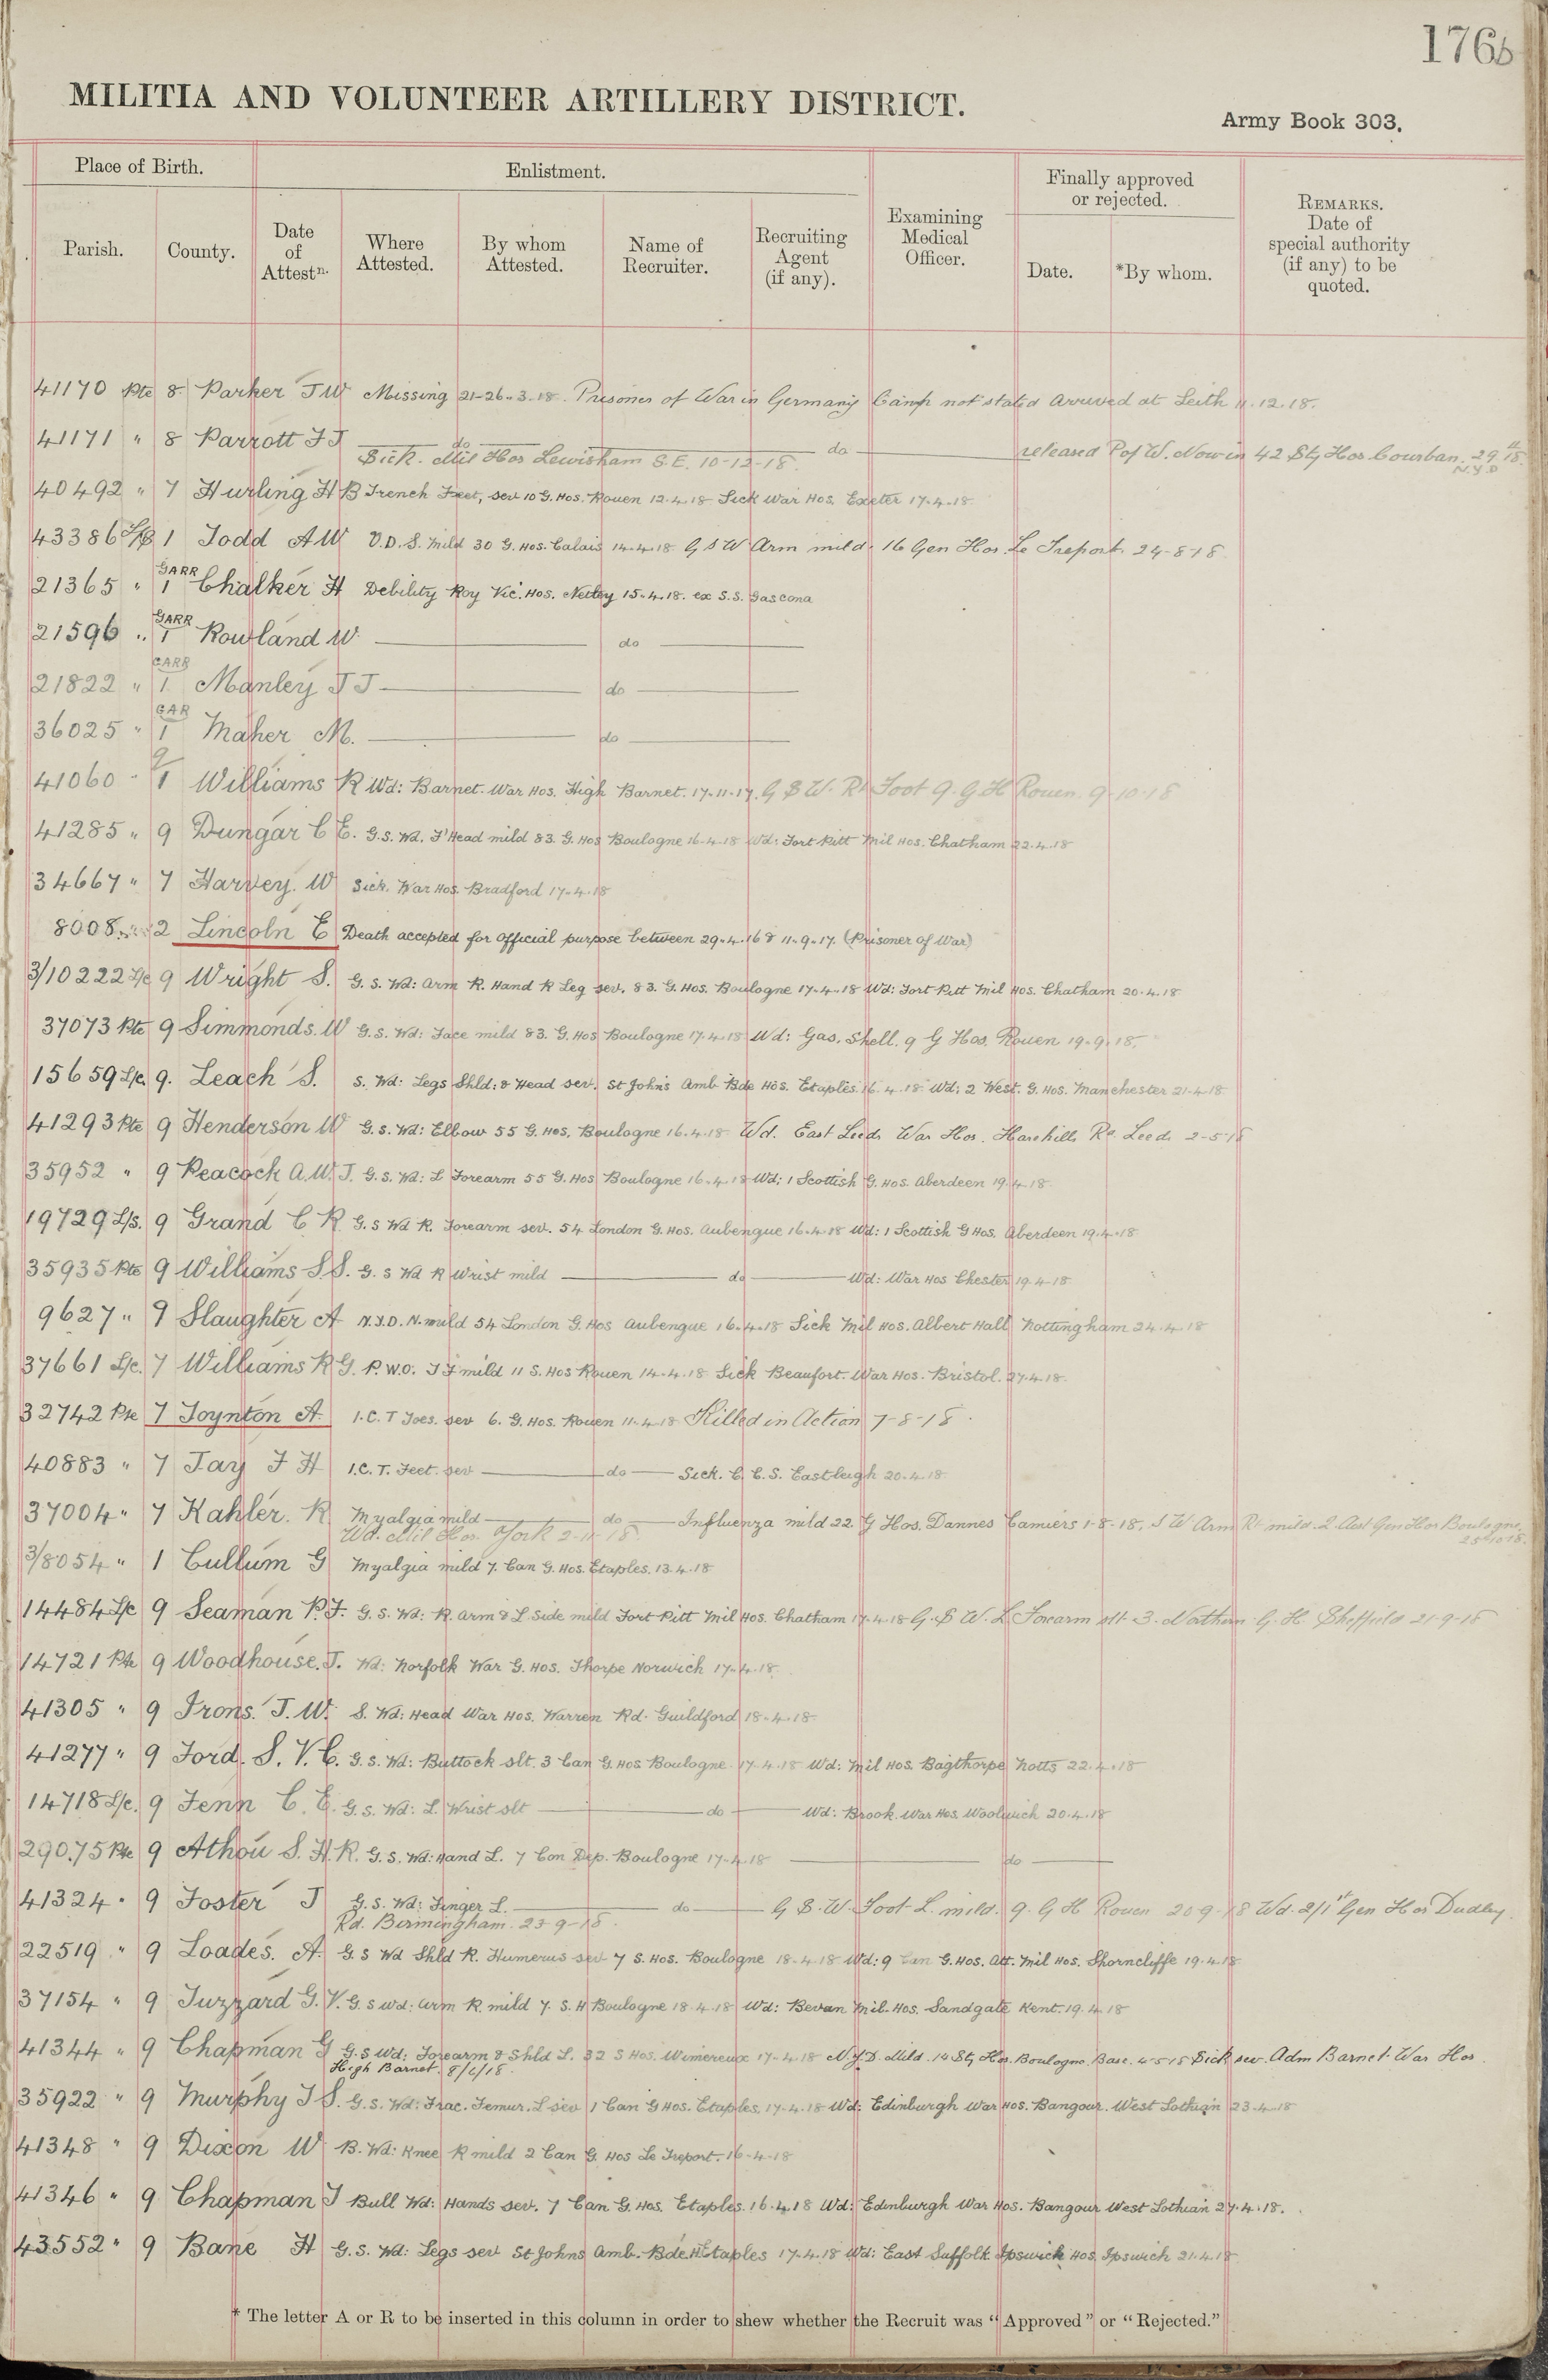 176b
MILITIA AND VOLUNTEER ARTILLERY DISTRICT.
Army Book 303.
Place of Birth.
Enlistment.
Finally approved or rejected.
Parish.
County.
Date of Attestn.
Where Attested.
By whom Attested.
Name of Recruiter.
Recruiting Agent (if any).
Examining Medical Officer.
Date.
*By whom.
REMARKS. Date of special authority (if any) to be quoted.
41170 Pte 8 Parker J W Missing 21-26-3-18. Prisoner of War in Germany Camp not stated Arrived at Leith 11.12.18.
41171 " 8 Parrott F J do do released P of W. Now in 42 Sty Hos Courban. 29.11.18.
Sick. Mil Hos Lewisham S.E. 10-12-18. N.Y.D
40492 " 7 Hurling H B Trench Feet, sev 10 G. Hos. Rouen 12.4.18 Sick War Hos. Exeter 17.4.18.
43386 1 Todd A W V.D.S. mild 30 G. Hos. Calais 14.4.18 G S W Arm mild. 16 Gen Hos. Le Treport 24-8-18.
21365 " GARR 1 Chalker H Debility Roy Vic. Hos. Netley 15.4.18. ex S.S. Gascona
21596 " GARR 1 Rowland W. do
21822 " GARR 1. Manley J J do
36025 " GAR 1 Maher M. do
41060 " 9 1 Williams R Wd: Barnet War Hos. High Barnet. 17.11.17. G S W. Rt Foot 9. G H Rouen. 9-10-18
41285 " 9 Dungar C E. G.S. Wd. F'Head mild 83. G. Hos Boulogne 16.4.18 Wd: Fort Pitt Mil Hos. Chatham 22.4.18
34667 " 7 Harvey. W Sick. War Hos. Bradford 17.4.18
8008 2 Lincoln E Death accepted for official purpose between 29.4.16 & 11.9.17. (Prisoner of War)
3/10222 L/c 9 Wright S. G. S. Wd: Arm R. Hand R Leg sev. 83. G. Hos. Boulogne 17.4.18 Wd: Fort Pitt Mil Hos. Chatham 20.4.18
37073 Pte 9 Simmonds. W G.S. Wd: Face mild 83. G. Hos Boulogne 17.4.18 Wd: Gas. Shell. 9 G Hos. Rouen 19.9.18.
15659 L/c. 9. Leach S. S. Wd: Legs Shld: & Head sev. St Johns Amb Bde Hos. Etaples. 16.4.18 Wd: 2 West. G. Hos. Manchester 21.4.18
41293 Pte 9 Henderson W G.S. Wd: Elbow 55 G. Hos. Boulogne 16.4.18 Wd. East Leeds War Hos. Harehills Rd Leeds 2-5-18
35952 " 9 Peacock A.W.J. G.S. Wd: L Forearm 55 G. Hos Boulogne 16.4.18 Wd: 1 Scottish G. Hos. Aberdeen 19.4.18
19729 L/s. 9 Grand C R. G.S Wd R. Forearm sev. 54 London G. Hos. Aubengue 16.4.18 Wd: 1 Scottish G Hos. Aberdeen 19.4.18
35935 Pte 9 Williams S S. G.S Wd R Wrist mild do Wd: War Hos Chester 19.4.18
9627 " 9 Slaughter A N.Y.D. N. mild 54 London G. Hos Aubengue 16.4.18 Sick Mil Hos. Albert Hall Nottingham 24.4.18
37661 L/c. 7 Williams R G. P.W.O. T F mild 11 S. Hos Rouen 14.4.18 Sick Beaufort War Hos. Bristol. 27.4.18.
32742 Pte 7 Joynton A. I.C.T Toes. sev 6. G. Hos. Rouen 11.4.18 Killed in Action 7-8-18.
40883 " 7 Jay F H I.C.T. Feet. sev do Sick. C. C. S. Eastleigh 20.4.18
37004 " 7 Kahler. R. Myalgia mild do Influenza mild 22. G Hos. Dannes Camiers 1-8-18. S W Arm Rt mild. 2 Aust Gen Hos Boulogne 25.10.18.
Wd. Mil Hos. York 2-11-18.
3/8054 " 1 Cullum G Myalgia mild 7. Can G. Hos. Etaples. 13.4.18
14484 L/c 9 Seaman P.F. G.S. Wd: R. Arm & L Side mild Fort Pitt Mil Hos. Chatham 17.4.18 G. S W. L. Forearm slt 3. Northern G. H. Sheffield 21-9-18
14721 Pte 9 Woodhouse. J. Wd: Norfolk War G. Hos. Thorpe Norwich 17.4.18.
41305 " 9 Irons. J. W. S. Wd: Head War Hos. Warren Rd. Guildford 18.4.18
41277 " 9 Ford. S. V. C. G.S. Wd: Buttock slt. 3 Can G. Hos Boulogne 17.4.18 Wd: Mil Hos. Bagthorpe Notts 22.4.18
14718 L/c. 9 Fenn C. E. G.S. Wd: L. Wrist slt do Wd: Brook. War Hos. Woolwich 20.4.18
29075 Pte 9 Athou S. H. R. G.S. Wd: Hand L. 7 Con Dep. Boulogne 17.4.18 do
41324 " 9 Foster J G.S. Wd: Finger L. do G S.W. Foot L. mild. 9. G H Rouen 20-9-18 Wd. 2/1st Gen Hos Dudley
Rd. Birmingham. 23-9-18.
22519 " 9 Loades. A. G.S Wd Shld R. Humerus sev 7 S. Hos. Boulogne 18.4.18 Wd: 9 Can G. Hos. Att. Mil Hos. Shorncliffe 19.4.18
37154 " 9 Tuzzard G. V. G.S Wd: Arm R. mild 7. S. H Boulogne 18.4.18 Wd: Bevan Mil. Hos. Sandgate Kent. 19.4.18
41344 " 9 Chapman G G.S Wd: Forearm & Shld L. 32 S Hos. Wimereux 17.4.18 N.Y.D. Mild. 14 Sty Hos. Boulogne Base. 4.5.18 Sick sev. Adm Barnet War Hos.
High Barnet. 8/6/18.
35922 " 9 Murphy J S. G.S. Wd: Frac. Femur. L sev 1 Can G Hos. Etaples. 17.4.18 Wd: Edinburgh War Hos. Bangour. West Lothian 23.4.18
41348 " 9 Dixon W B. Wd: Knee R mild 2 Can G. Hos Le Treport. 16.4.18
41346 " 9 Chapman J Bull Wd: Hands sev. 7 Can G. Hos. Etaples. 16.4.18 Wd: Edinburgh War Hos. Bangour West Lothian 27.4.18.
43552 " 9 Bane H G.S. Wd: Legs sev St Johns Amb. Bde. H Etaples 17.4.18 Wd: East Suffolk Ipswich Hos. Ipswich 21.4.18
* The letter A or R to be inserted in this column in order to shew whether the Recruit was "Approved" or "Rejected."